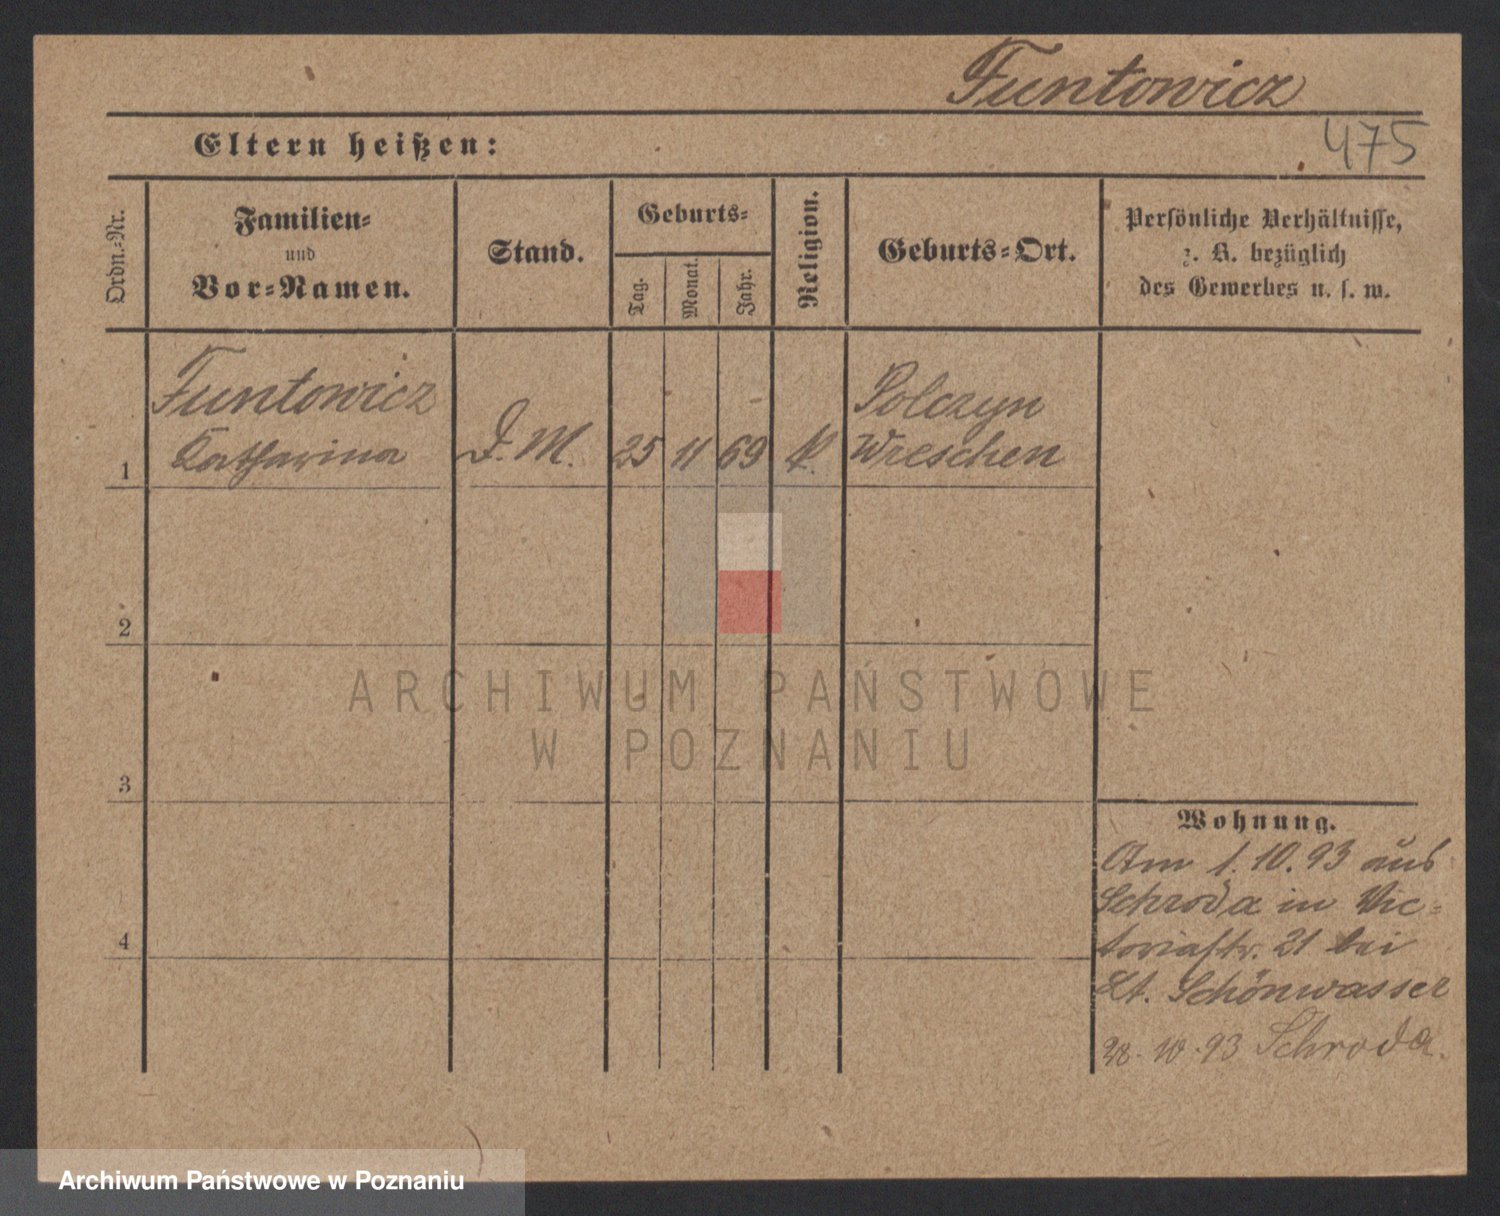 Funtowicz
475
Eltern heißen:
Ordn.-Nr.
Familien-
und
Vor-Namen.
Stand.
Geburts-
Tag.
Monat.
Jahr.
Religion.
Geburts-Ort.
Persönliche Verhältnisse,
z. B. bezüglich
des Gewerbes u. s. w.
Funtowicz
Katharina
1
D. M.
25
11
69
K.
Polczyn
Wreschen
2
ARCHIWUM PAŃSTWOWE
W POZNANIU
3
Wohnung.
Am 1.10.93 aus
Schroda in Vic-
toriastr. 21 bei
Lt. Schönwasser
28.10.93 Schroda.
4
Archiwum Państwowe w Poznaniu